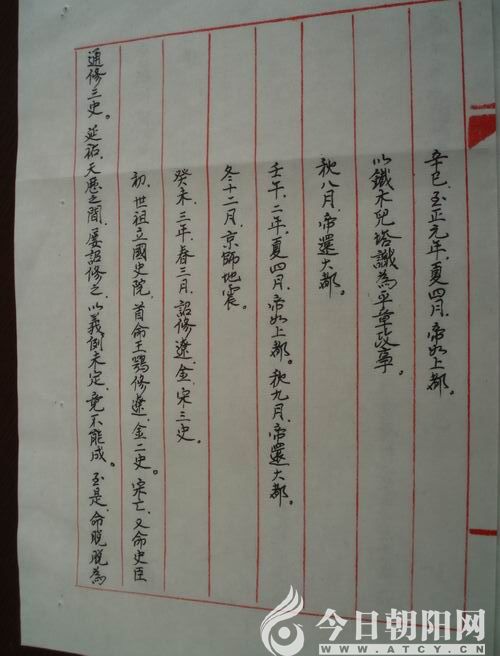 辛巳、至正元年、夏四月、帝如上都。
以鐵木兒塔識為平章政事。
秋八月、帝還大都。
壬午、二年、夏四月、帝如上都。秋九月、帝還大都。
冬十二月、京師地震。
癸未、三年、春三月、詔修遼、金、宋三史。
初、世祖立國史院、首命王鶚修遼、金二史。宋亡、又命史臣
通修三史。延祐、天歷之間、屢詔修之、以義例未定、竟不能成。至是、命脫脫為
今日朝阳网
WWW.ATCY.CN